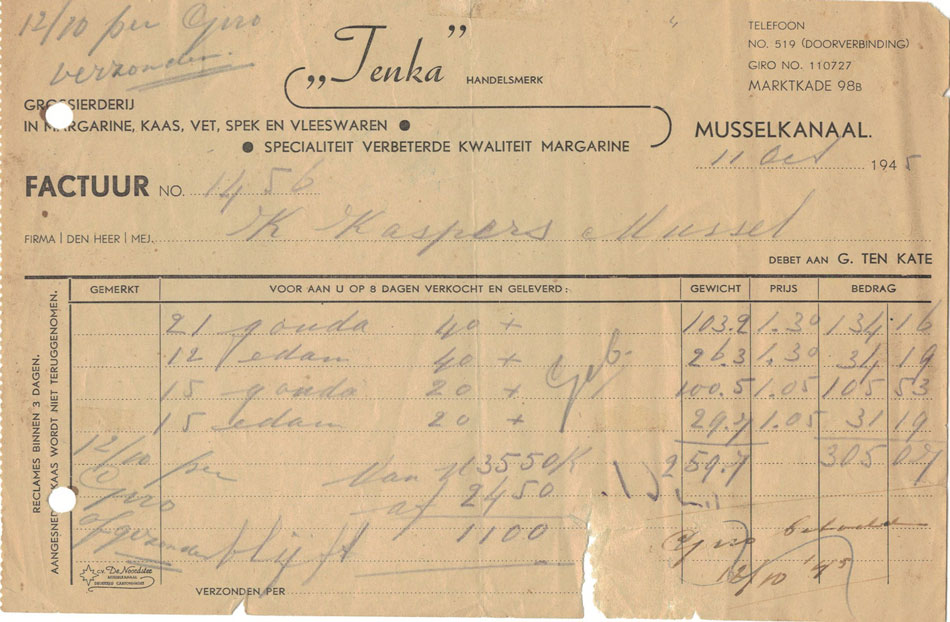 12/10 per Giro
verzonden.
„Tenka” HANDELSMERK
TELEFOON
NO. 519 (DOORVERBINDING)
GIRO NO. 110727
MARKTKADE 98B
GROSSIERDERIJ
IN MARGARINE, KAAS, VET, SPEK EN VLEESWAREN ●
● SPECIALITEIT VERBETERDE KWALITEIT MARGARINE
MUSSELKANAAL.
11 Oct 1945
FACTUUR NO. 1456
FIRMA | DEN HEER | MEJ. K Kaspers Mussel
DEBET AAN G. TEN KATE
GEMERKT VOOR AAN U OP 8 DAGEN VERKOCHT EN GELEVERD: GEWICHT PRIJS BEDRAG
21 gouda 40 + 103.2 1.30 134 16
12 edam 40 + 26.3 1.30 34 19
15 gouda 20 + 100.5 1.05 105 53
15 edam 20 + 29.7 1.05 31 19
259.7 305 07
12/10 per
Giro
afgezonden
Van 13550 K
af 2450
blijft 1100
Giro betaald
12/10 '45
RECLAMES BINNEN 3 DAGEN.
AANGESNEDEN KAAS WORDT NIET TERUGGENOMEN.
C.V. De Noordster
MUSSELKANAAL
VERZONDEN PER